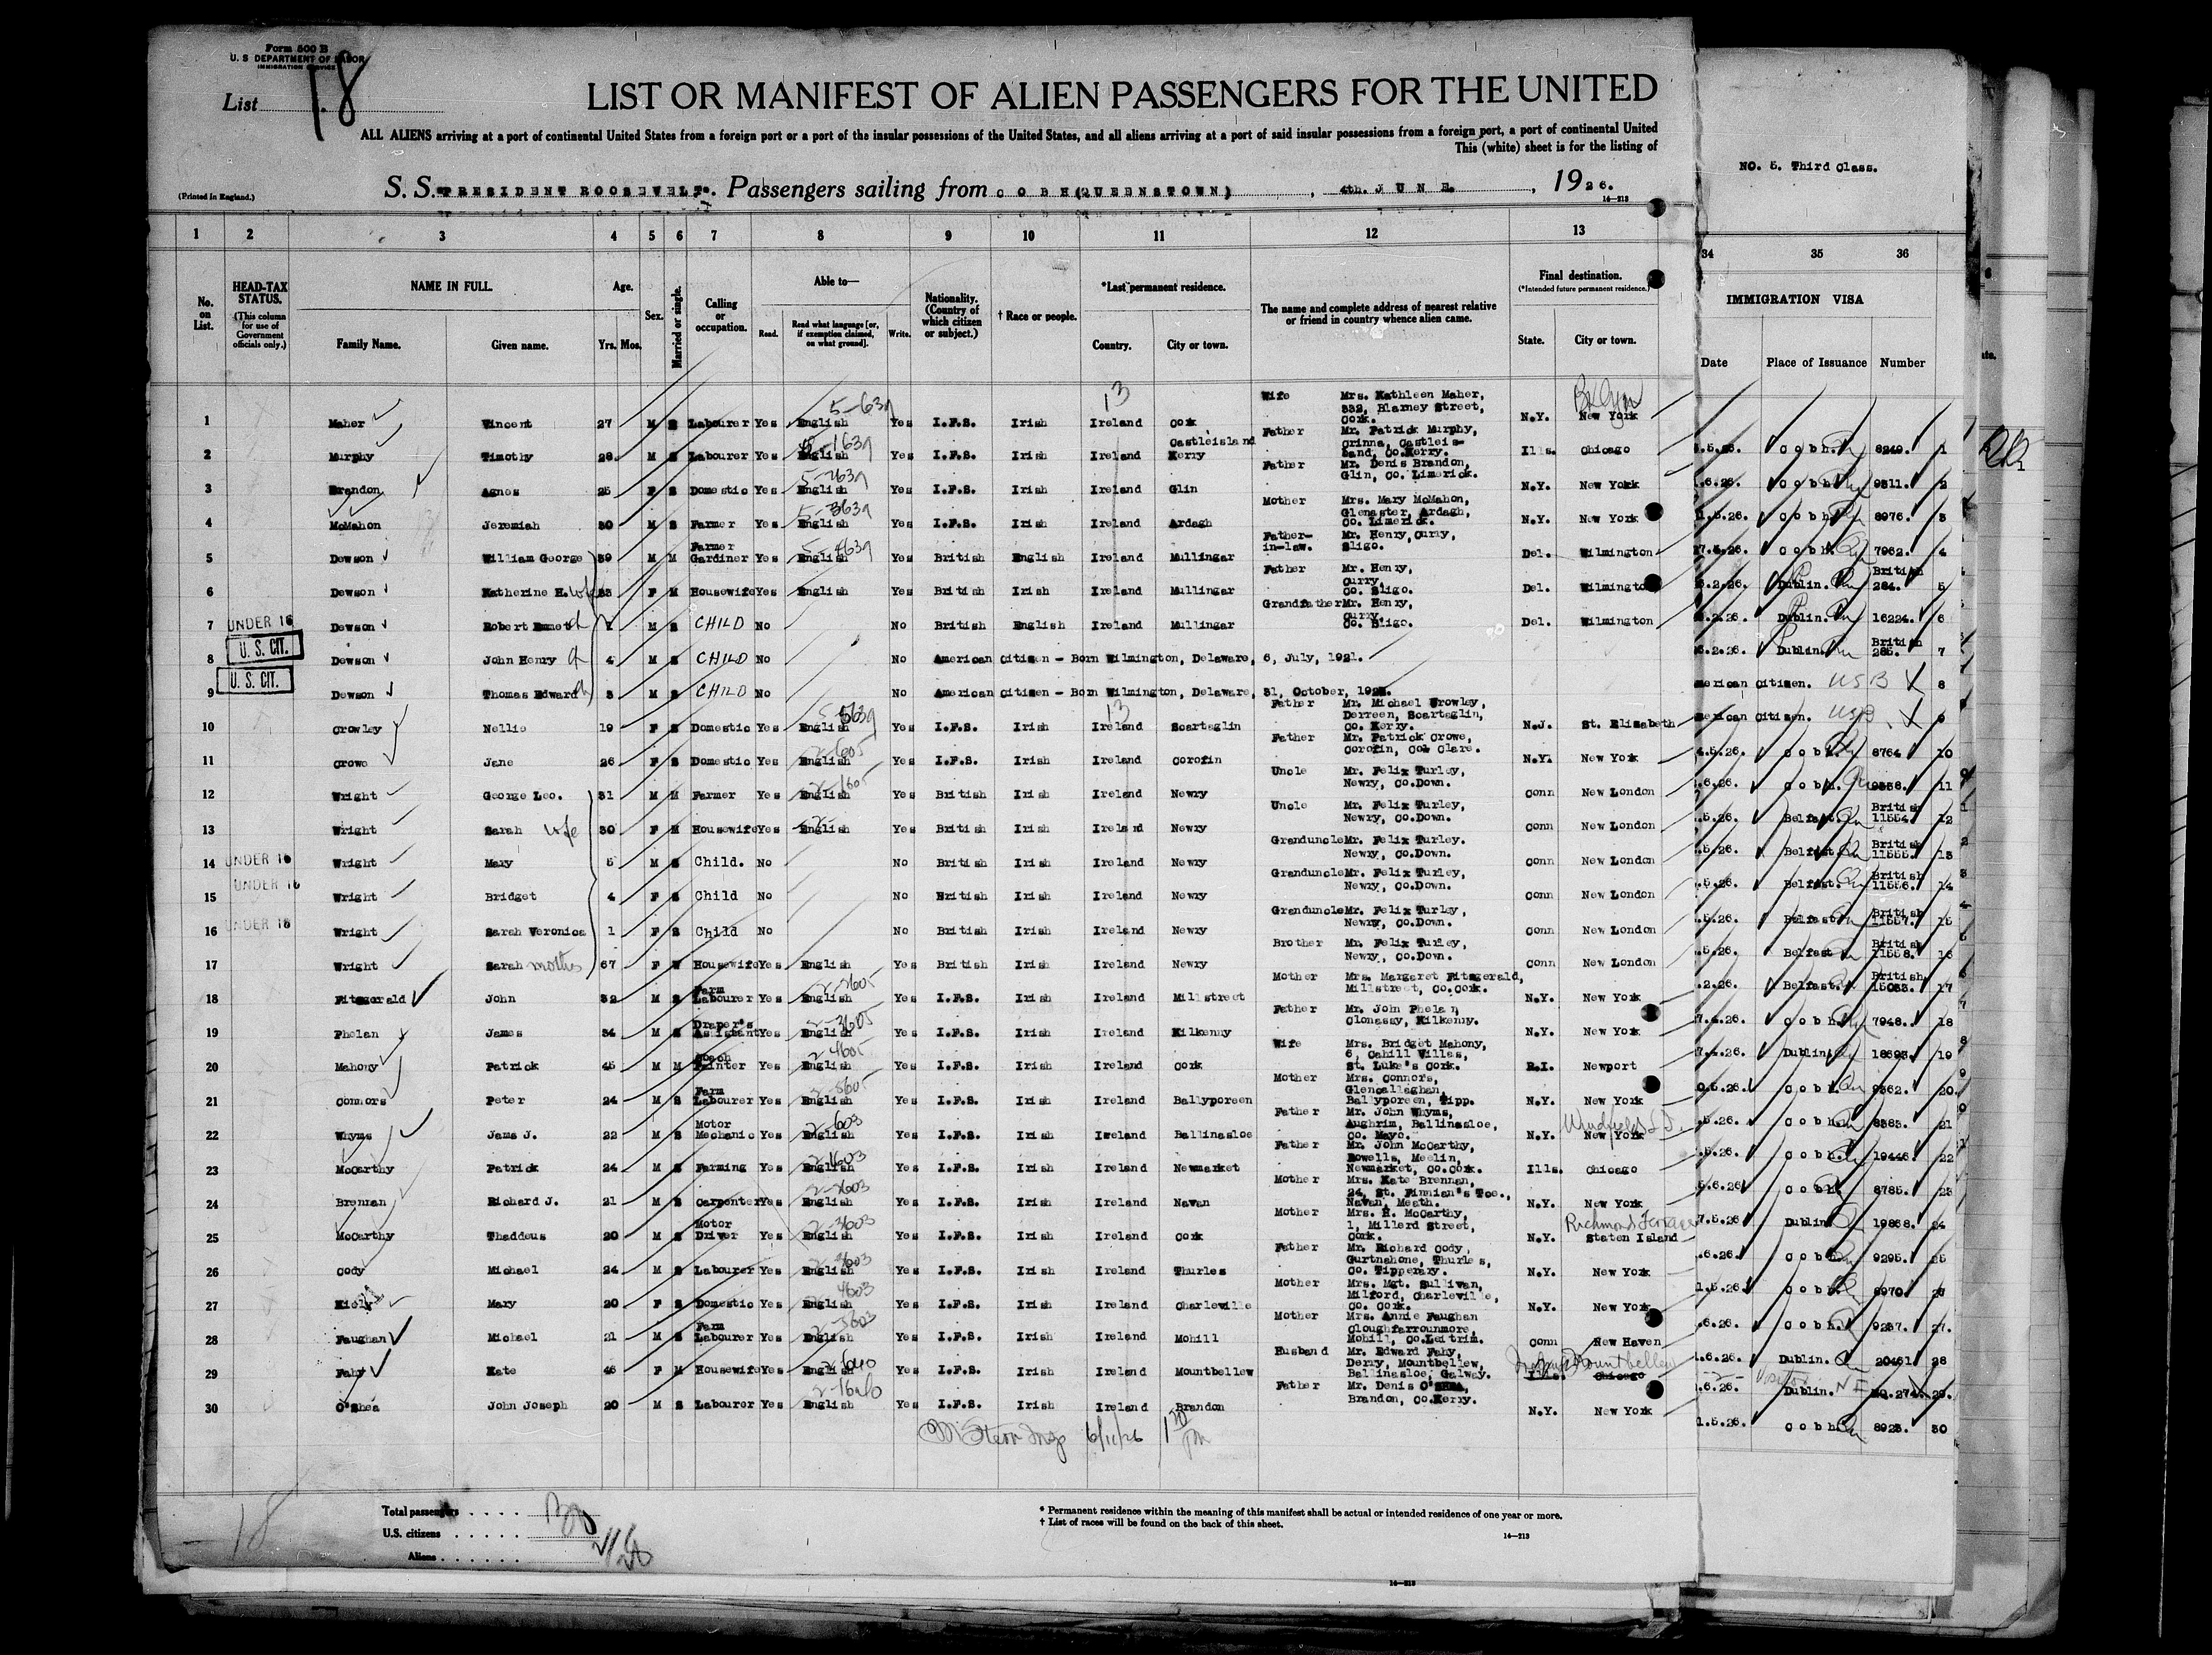 Form 500 B
U. S DEPARTMENT OF LABOR
IMMIGRATION SERVICE
List 18
LIST OR MANIFEST OF ALIEN PASSENGERS FOR THE UNITED
ALL ALIENS arriving at a port of continental United States from a foreign port or a port of the insular possessions of the United States, and all aliens arriving at a port of said insular possessions from a foreign port, a port of continental United
This (white) sheet is for the listing of
NO. 5. Third Class.
(Printed in England.)
S. S. "PRESIDENT ROOSEVELT". Passengers sailing from COBH(QUEENSTOWN), 4th. JUNE., 1926.
14—213
1 2 3 4 5 6 7 8 9 10 11 12 13 34 35 36
No. on List.
HEAD-TAX STATUS. (This column for use of Government officials only.)
NAME IN FULL.
Family Name. Given name.
Age. Yrs. Mos.
Sex.
Married or single.
Calling or occupation.
Able to—
Read. Read what language [or, if exemption claimed, on what ground]. Write.
Nationality. (Country of which citizen or subject.)
† Race or people.
*Last permanent residence.
Country. City or town.
The name and complete address of nearest relative or friend in country whence alien came.
Final destination. (*Intended future permanent residence.)
State. City or town.
IMMIGRATION VISA
Date Place of Issuance Number
1 Maher Vincent 27 M S Labourer Yes English Yes I.F.S. Irish Ireland Cork Wife Mrs. Kathleen Maher, 332, Blarney Street, Cork. N.Y. New York
2 Murphy Timothy 28 M S Labourer Yes English Yes I.F.S. Irish Ireland Castleisland Kerry Father Mr. Patrick Murphy, Crinna, Castleis- land, Co.Kerry. Ills. Chicago
3 Brandon Agnes 25 F S Domestic Yes English Yes I.F.S. Irish Ireland Glin Father Mr. Denis Brandon, Glin, Co. Limerick. N.Y. New York
4 McMahon Jeremiah 30 M S Farmer Yes English Yes I.F.S. Irish Ireland Ardagh Mother Mrs. Mary McMahon, Glenaster, Ardagh, Co. Limerick. N.Y. New York
5 Dewson William George 39 M M Farmer Gardiner Yes English Yes British English Ireland Mullingar Father- in-law. Mr. Henry, Curry, Sligo. Del. Wilmington
6 Dewson Katherine H. wife 33 F M Housewife Yes English Yes British Irish Ireland Mullingar Father Mr. Henry, Curry, Co. Sligo. Del. Wilmington
7 UNDER 16 Dewson Robert Emmet M S CHILD No No British English Ireland Mullingar Grandfather Mr. Henry, Curry, Co. Sligo. Del. Wilmington
8 U. S. CIT. Dewson John Henry 4 M S CHILD No No American Citizen - Born Wilmington, Delaware, 6, July, 1921.
9 U. S. CIT. Dewson Thomas Edward 3 M S CHILD No No American Citizen - Born Wilmington, Delaware, 31, October,
10 Crowley Nellie 19 F S Domestic Yes English Yes I.F.S. Irish Ireland Scartaglin Father Mr. Michael Crowley, Derreen, Scartaglin, Co. Kerry. N.J. St. Elizabeth
11 Crowe Jane 26 F S Domestic Yes English Yes I.F.S. Irish Ireland Corofin Father Mr. Patrick Crowe, Corofin, Co. Clare. N.Y. New York
12 Wright George Leo. 31 M M Farmer Yes English Yes British Irish Ireland Newry Uncle Mr. Felix Turley, Newry, Co.Down. Conn New London
13 Wright Sarah wife 30 F M Housewife Yes English Yes British Irish Ireland Newry Uncle Mr. Felix Turley, Newry, Co.Down. Conn New London
14 UNDER 16 Wright Mary 5 M S Child. No No British Irish Ireland Newry Granduncle Mr. Felix Turley. Newry, Co.Down. Conn New London
15 UNDER 16 Wright Bridget 4 F S Child No No British Irish Ireland Newry Granduncle Mr. Felix Turley, Newry, Co.Down. Conn New London
16 UNDER 16 Wright Sarah Veronica 1 F S Child No No British Irish Ireland Newry Granduncle Mr. Felix Turley, Newry, Co.Down. Conn New London
17 Wright Sarah mother 67 F W Housewife Yes English Yes British Irish Ireland Newry Brother Mr. Felix Turley, Newry, Co.Down. Conn New London
18 Fitzgerald John 32 M S Farm Labourer Yes English Yes I.F.S. Irish Ireland Millstreet Mother Mrs. Margaret Fitzgerald, Millstreet, Co.Cork. N.Y. New York
19 Phelan James 34 M S Draper's Assistant Yes English Yes I.F.S. Irish Ireland Kilkenny Father Mr. John Phelan, Clonassy, Kilkenny. N.Y. New York
20 Mahony Patrick 45 M M Coach Painter Yes English Yes I.F.S. Irish Ireland Cork Wife Mrs. Bridget Mahony, 6, Cahill Villas, St. Luke's Cork. R.I. Newport
21 Connors Peter 24 M S Farm Labourer Yes English Yes I.F.S. Irish Ireland Ballyporeen Mother Mrs. Connors, Glencallaghan, Ballyporeen, Tipp. N.Y. New York
22 Whyms Jams J. 22 M S Motor Mechanic Yes English Yes I.F.S. Irish Ireland Ballinasloe Father Mr. John Whyms, Aughrim, Ballinasloe, Co. Mayo. N.Y. New York
23 McCarthy Patrick 24 M S Farming Yes English Yes I.F.S. Irish Ireland Newmarket Father Mr. John McCarthy, Rowells, Meelin, Newmarket, Co.Cork. Ills. Chicago
24 Brennan Richard J. 21 M S Carpenter Yes English Yes I.F.S. Irish Ireland Navan Mother Mrs. Kate Brennan, 24, St. Finnian's Tce., Navan, Meath. N.Y. New York
25 McCarthy Thaddeus 20 M S Motor Driver Yes English Yes I.F.S. Irish Ireland Cork Mother Mrs. H. McCarthy, 1, Millerd Street, Cork. N.Y. Richmond Terrace Staten Island
26 Cody Michael 24 M S Labourer Yes English Yes I.F.S. Irish Ireland Thurles Father Mr. Richard Cody, Gurtnahone, Thurles, Co. Tipperary. N.Y. New York
27 Kiely Mary 20 F S Domestic Yes English Yes I.F.S. Irish Ireland Charleville Mother Mrs. Mgt. Sullivan, Milford, Charleville, Co. Cork. N.Y. New York
28 Faughan Michael 21 M S Farm Labourer Yes English Yes I.F.S. Irish Ireland Mohill Mother Mrs. Annie Faughan Cloughfarrounmore, Mohill, Co.Leitrim. Conn New Haven
29 Fahy Kate 45 F M Housewife Yes English Yes I.F.S. Irish Ireland Mountbellew Husband Mr. Edward Fahy, Derry, Mountbellew, Ballinasloe, Galway. Ills. Chicago Mountbellew
30 O'Shea John Joseph 20 M S Labourer Yes English Yes I.F.S. Irish Ireland Brandon Father Mr. Denis O'SHEA, Brandon, Co.Kerry. N.Y. New York
6/11/26
Cobh. 8249. 1
Cobh. 9311. 2
Cobh. 8976. 3
Cobh. 7962. 4
Dublin. British 284. 5
Dublin. 16224. 6
Dublin. British 285. 7
merican Citizen. USB 8
merican Citizen. USB 9
Cobh. 8764 10
Cobh. 11
Belfast. British 11554. 12
Belfast. British 11555. 13
Belfast. British 11556. 14
Belfast. British 11557. 15
Belfast British 11558. 16
Belfast. British 15033. 17
Cobh. 7948. 18
Dublin. 18693 19
Cobh. 9362. 20.
Cobh. 21
Cobh. 19446. 22
Cobh. 8785. 23
Dublin. 19868. 24
Cobh. 9295. 25
Cobh. 8970. 26
Cobh. 9257. 27.
Dublin. 20461 28
Dublin. 29.
Cobh. 8923. 30
Total passengers . . . .
U.S. citizens . . . . .
Aliens . . . . . .
18
* Permanent residence within the meaning of this manifest shall be actual or intended residence of one year or more.
† List of races will be found on the back of this sheet.
14—213
14—213